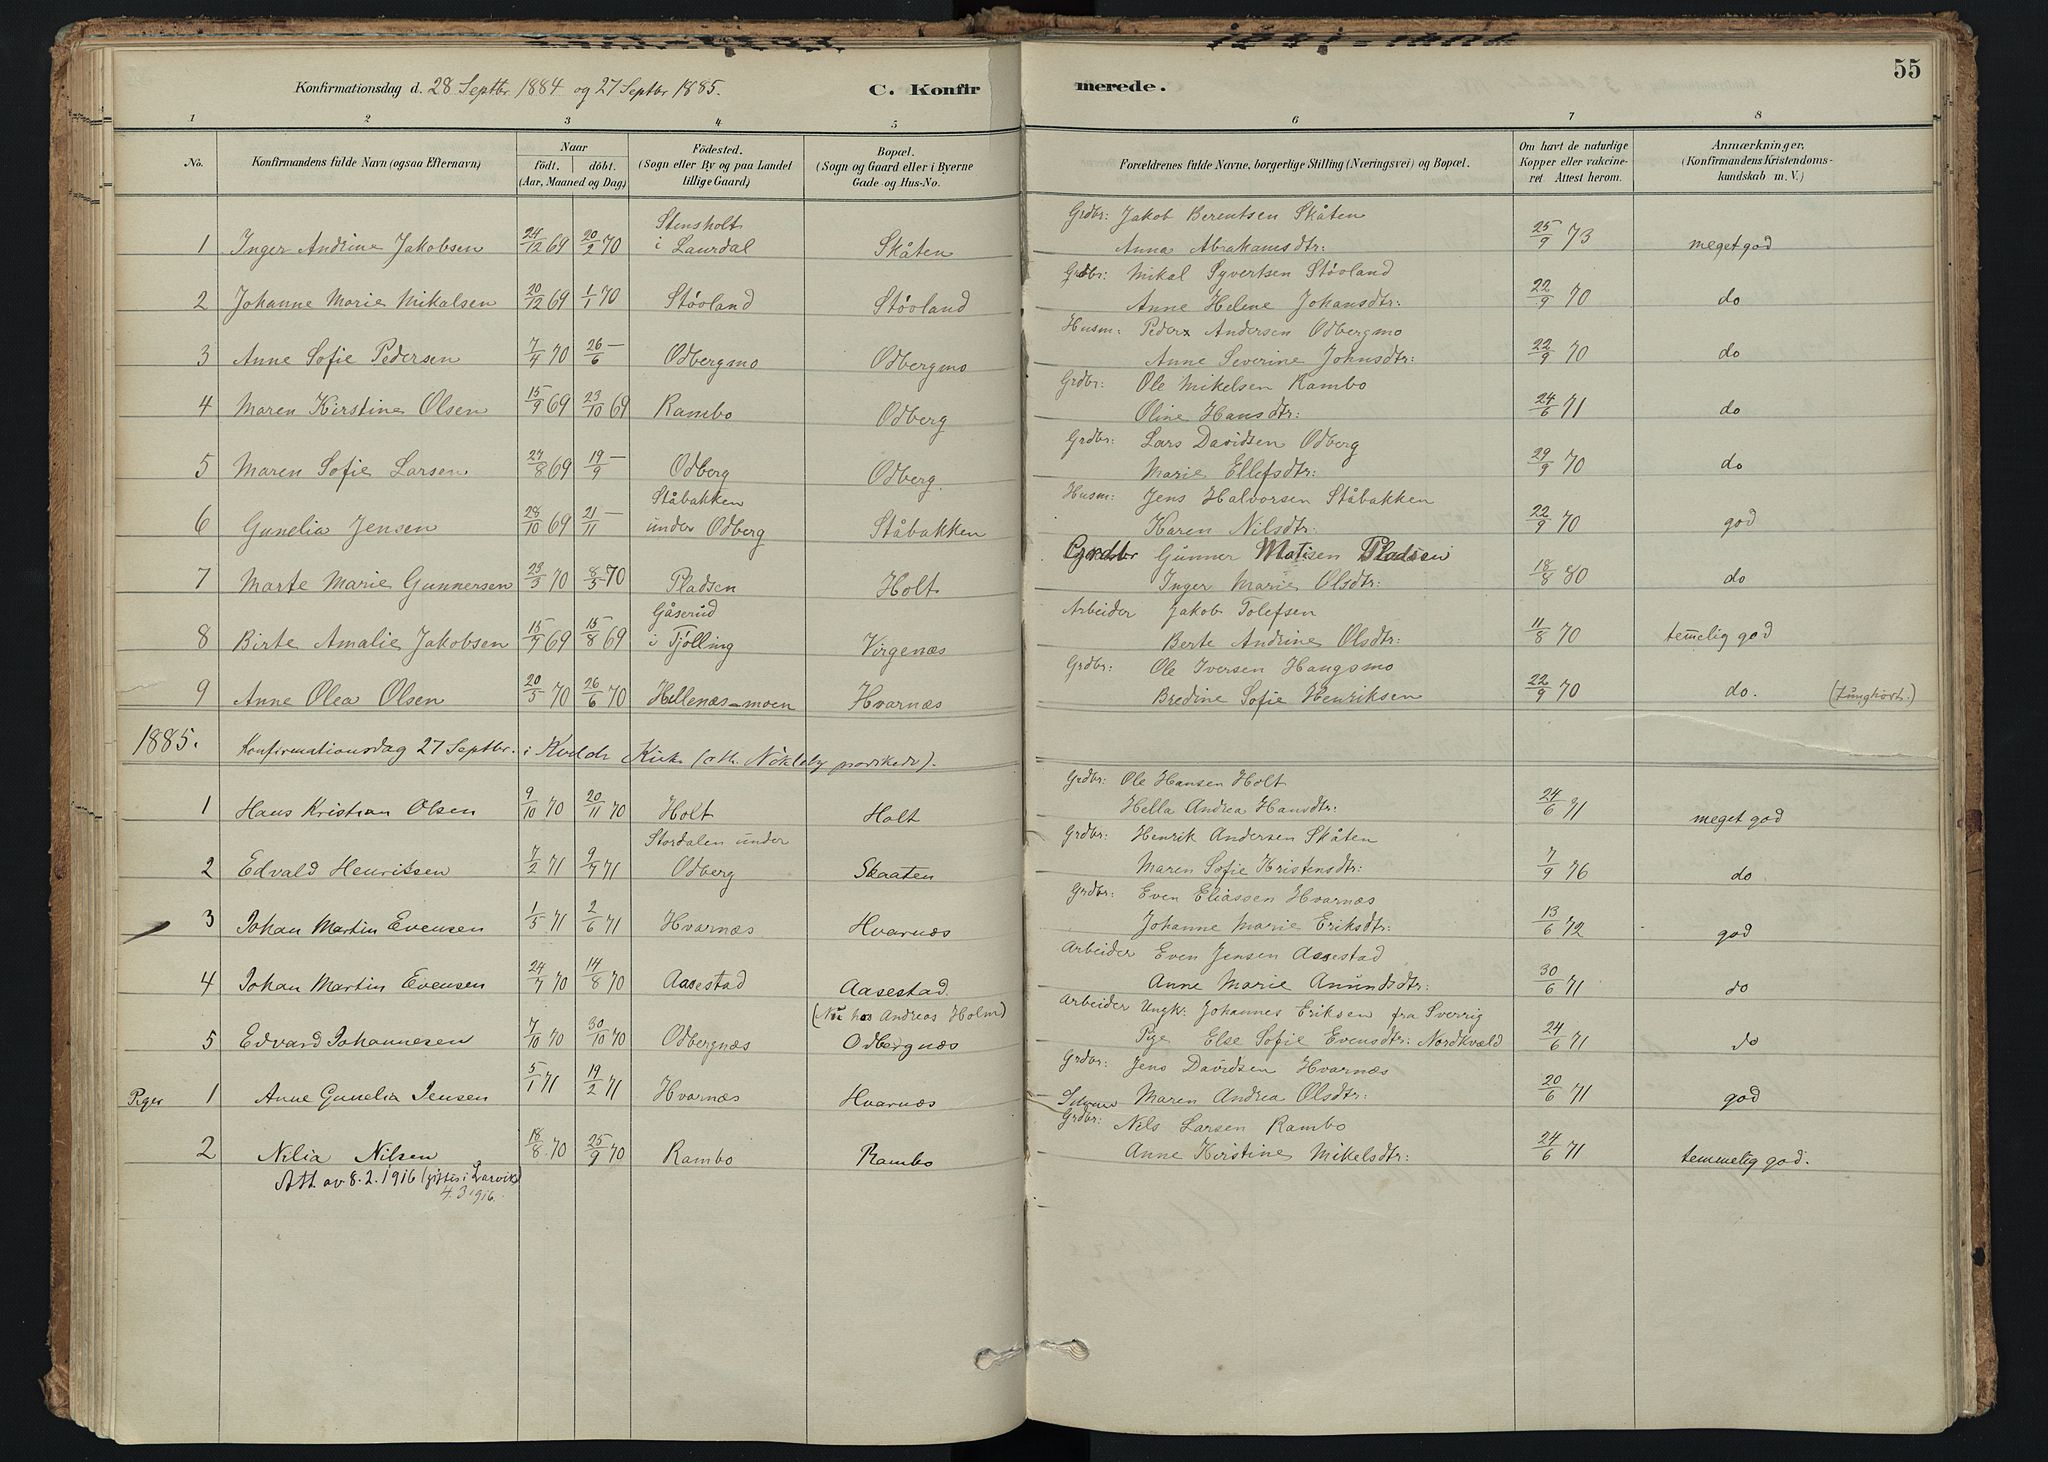 Konfirmationsdag d. 28 Septbr. 1884 og 27 Septbr 1885. C. Konfir merede. 55
1 2 3 4 5 6 7 8
No. Konfirmandens fulde Navn (ogsaa Efternavn) Naar födt. döbt. (Aar, Maaned og Dag) Födested. (Sogn eller By og paa Landet tillige Gaard) Bopæl. (Sogn og Gaard eller i Byerne Gade og Hus-No. Forældrenes fulde Navne, borgerlige Stilling (Næringsvei) og Bopæl. Om havt de naturlige Kopper eller vakcineret Attest herom. Anmærkninger, (Konfirmandens Kristendomskundskab m. V.)
Stensholt Grdbr: Jakob Berentsen Skåten
1 Inger Andrine Jakobsen 24/12 69 20/2 70 i Laurdal Skåten Anna Abrahamsdtr: 25/9 73 meget god
Grdbr: Mikal Syvertsen Stövland
2 Johanne Marie Mikalsen 20/12 69 1/1 70 Stövland Stövland Anne Helene Johansdtr: 22/9 70 do
Husm: Peder Andersen Odbergmo
3 Anne Sofie Pedersen 7/4 70 26/6 — Odbergmo Odbergmo Anne Severine Johnsdtr: 22/9 70 do
Grdbr: Ole Mikelsen Rambo
4 Maren Kirstine Olsen 15/9 69 23/10 69 Rambo Odberg Oline Hansdtr: 24/6 71 do
Grdbr: Lars Davidsen Odberg
5 Maren Sofie Larsen 27/8 69 19/9 — Odberg Odberg. Marie Ellefsdtr: 29/9 70 do
Ståbakken Husm: Jens Halvorsen Ståbakken
6 Gunelia Jensen 28/10 69 21/11 — under Odberg Ståbakken Karen Nilsdtr: 22/9 70 god
Grdbr Gunner Matisen Pladsen
7 Marte Marie Gunnersen 23/3 70 8/5 70 Pladsen Holt Inger Marie Olsdtr: 18/8 80 do
Gåserud Arbeider Jakob Tolefsen
8 Birte Amalie Jakobsen 15/7 69 15/8 69 i Tjölling Virgenæs Berte Andrine Olsdtr: 11/8 70 temelig god
Grdbr: Ole Iversen Haugsmo
9 Anne Olea Olsen 20/5 70 26/6 70 Hellenæs-moen Hvarnæs Bredine Sofie Henriksen 22/9 70 do. (tunghört.)
1885. Konfirmationsdag 27 Septbr. i Kvelde Kirke (o.th. Nökleby
Grdbr: Ole Hansen Holt
1 Hans Kristian Olsen 9/10 70 20/11 70 Holt Holt Hella Andrea Hansdtr: 24/6 71 meget god
Stordalen under Grdbr: Henrik Andersen Skåten
2 Edvald Henriksen 7/2 71 9/7 71 Odberg Skaaten Maren Sofie Kristensdtr: 7/9 76 do
Grdbr: Even Eliassen Hvarnæs
3 Johan Martin Evensen 1/5 71 2/6 71 Hvarnæs Hvarnæs Johanne Marie Eriksdtr: 13/6 72 god
Arbeider Even Jensen Aasestad
4 Johan Martin Evensen 24/7 70 14/8 70 Aasestad Aasestad. Anne Marie Anundsdtr: 30/6 71 do
(Nu hos Andreas Holm) Arbeider Ungk: Johannes Eriksen fra Sverrig
5 Edvard Johannesen 7/10 70 30/10 70 Odbergnæs Odbergnæs Pige Else Sofie Evensdtr: Nordkvæld 24/6 71 do
Grdbr: Jens Davidsen Hvarnæs
Piger 1 Anne Gunelia Jensen 5/1 71 19/2 71 Hvarnæs Hvarnæs Maren Andrea Olsdtr: 20/6 71 god
Grdbr: Nels Larsen Rambo
2 Nilia Nilsen 18/8 70 25/9 70 Rambo Rambo Anne Kirstine Mikelsdtr: 24/6 71 temmelig god.
Att. av 8.2.1916 (giftes i Larvik
4.3.1916.